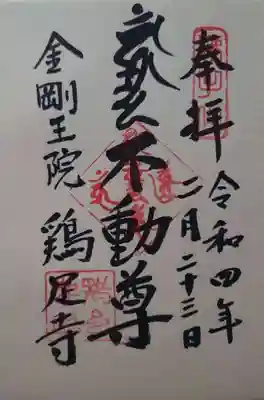 奉拝
令和四年
二月二十三日
不動尊
金剛王院
鶏足寺